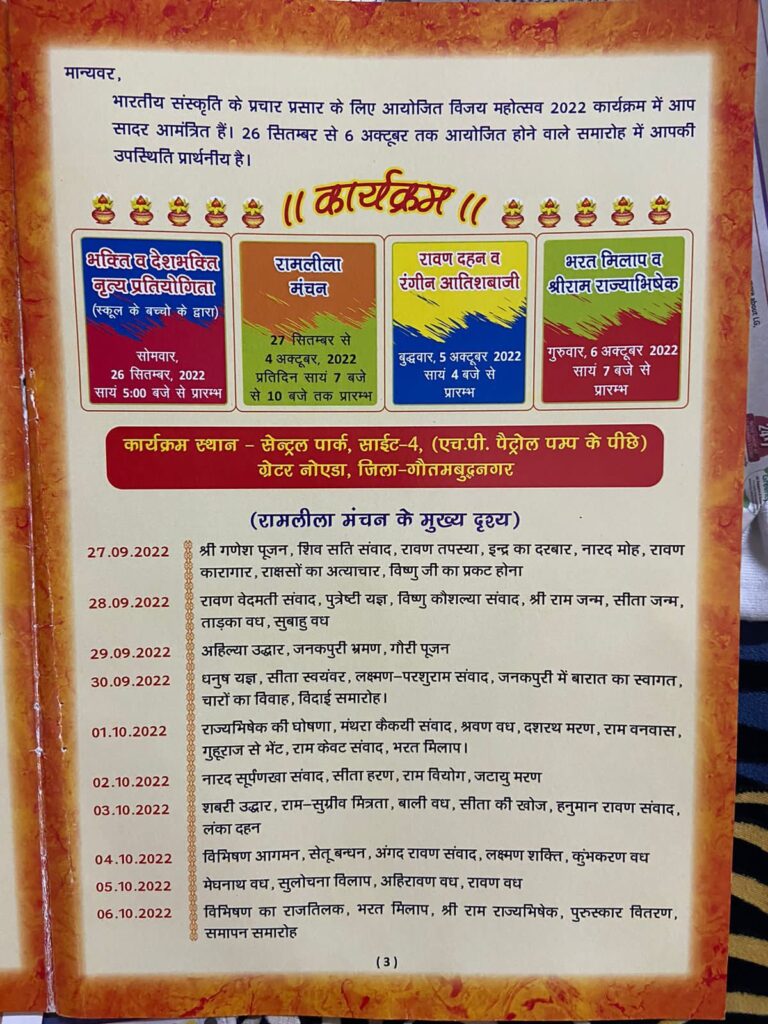 मान्यवर,
भारतीय संस्कृति के प्रचार प्रसार के लिए आयोजित विजय महोत्सव 2022 कार्यक्रम में आप
सादर आमंत्रित हैं। 26 सितम्बर से 6 अक्टूबर तक आयोजित होने वाले समारोह में आपकी
उपस्थिति प्रार्थनीय है।
॥ कार्यक्रम ॥
भक्ति व देशभक्ति
नृत्य प्रतियोगिता
(स्कूल के बच्चो के द्वारा)
सोमवार,
26 सितम्बर, 2022
सायं 5:00 बजे से प्रारम्भ
रामलीला
मंचन
27 सितम्बर से
4 अक्टूबर, 2022
प्रतिदिन सायं 7 बजे
से 10 बजे तक प्रारम्भ
रावण दहन व
रंगीन आतिशबाजी
बुद्धवार, 5 अक्टूबर 2022
सायं 4 बजे से
प्रारम्भ
भरत मिलाप व
श्रीराम राज्याभिषेक
गुरुवार, 6 अक्टूबर 2022
सायं 7 बजे से
प्रारम्भ
कार्यक्रम स्थान - सेन्ट्रल पार्क, साईट-4, (एच.पी. पैट्रोल पम्प के पीछे)
ग्रेटर नोएडा, जिला-गौतमबुद्धनगर
(रामलीला मंचन के मुख्य दृश्य)
27.09.2022 श्री गणेश पूजन, शिव सति संवाद, रावण तपस्या, इन्द्र का दरबार, नारद मोह, रावण
कारागार, राक्षसों का अत्याचार, विष्णु जी का प्रकट होना
28.09.2022 रावण वेदमती संवाद, पुत्रेष्टी यज्ञ, विष्णु कौशल्या संवाद, श्री राम जन्म, सीता जन्म,
ताड़का वध, सुबाहु वध
29.09.2022 अहिल्या उद्धार, जनकपुरी भ्रमण, गौरी पूजन
30.09.2022 धनुष यज्ञ, सीता स्वयंवर, लक्ष्मण-परशुराम संवाद, जनकपुरी में बारात का स्वागत,
चारों का विवाह, विदाई समारोह।
01.10.2022 राज्यभिषेक की घोषणा, मंथरा कैकयी संवाद, श्रवण वध, दशरथ मरण, राम वनवास,
गुहूराज से भेंट, राम केवट संवाद, भरत मिलाप।
02.10.2022 नारद सूर्पणखा संवाद, सीता हरण, राम वियोग, जटायु मरण
03.10.2022 शबरी उद्धार, राम-सुग्रीव मित्रता, बाली वध, सीता की खोज, हनुमान रावण संवाद,
लंका दहन
04.10.2022 विभिषण आगमन, सेतू बन्धन, अंगद रावण संवाद, लक्ष्मण शक्ति, कुंभकरण वध
05.10.2022 मेघनाथ वध, सुलोचना विलाप, अहिरावण वध, रावण वध
06.10.2022 विभिषण का राजतिलक, भरत मिलाप, श्री राम राज्यभिषेक, पुरुस्कार वितरण,
समापन समारोह
(3)